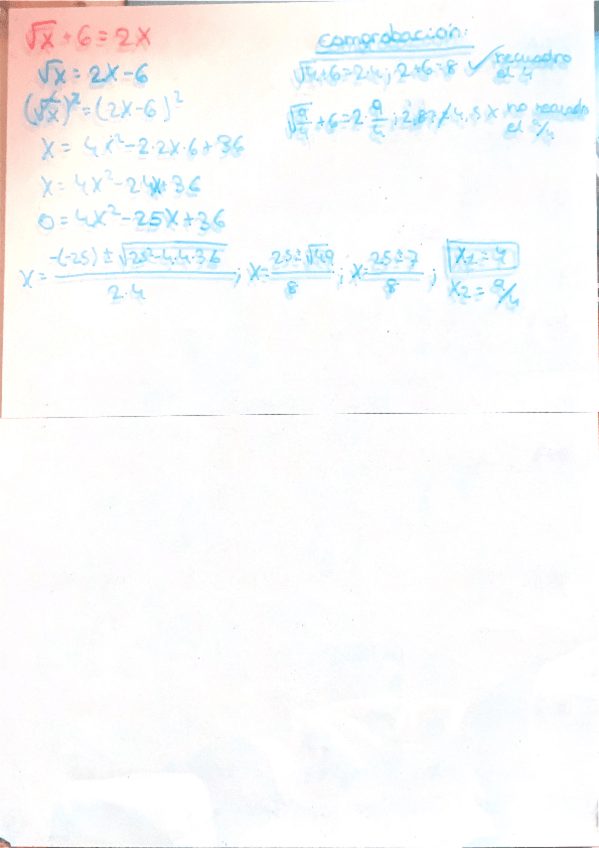 √x + 6 = 2x
√x = 2x - 6
(√x)² = (2x - 6)²
x = 4x² - 2·2x·6 + 36
x = 4x² - 24x + 36
0 = 4x² - 25x + 36
x = (-(-25) ± √(25² - 4·4·36)) / (2·4) ; x = (25 ± √49) / 8 ; x = (25 ± 7) / 8 ; x₁ = 4
x₂ = 9/4
comprobación:
√4 + 6 = 2·4 ; 2 + 6 = 8 ✓ recuadro
el 4
√(9/4) + 6 = 2·9/4 ; ≠ 4,5 x no recuadro
el 9/4